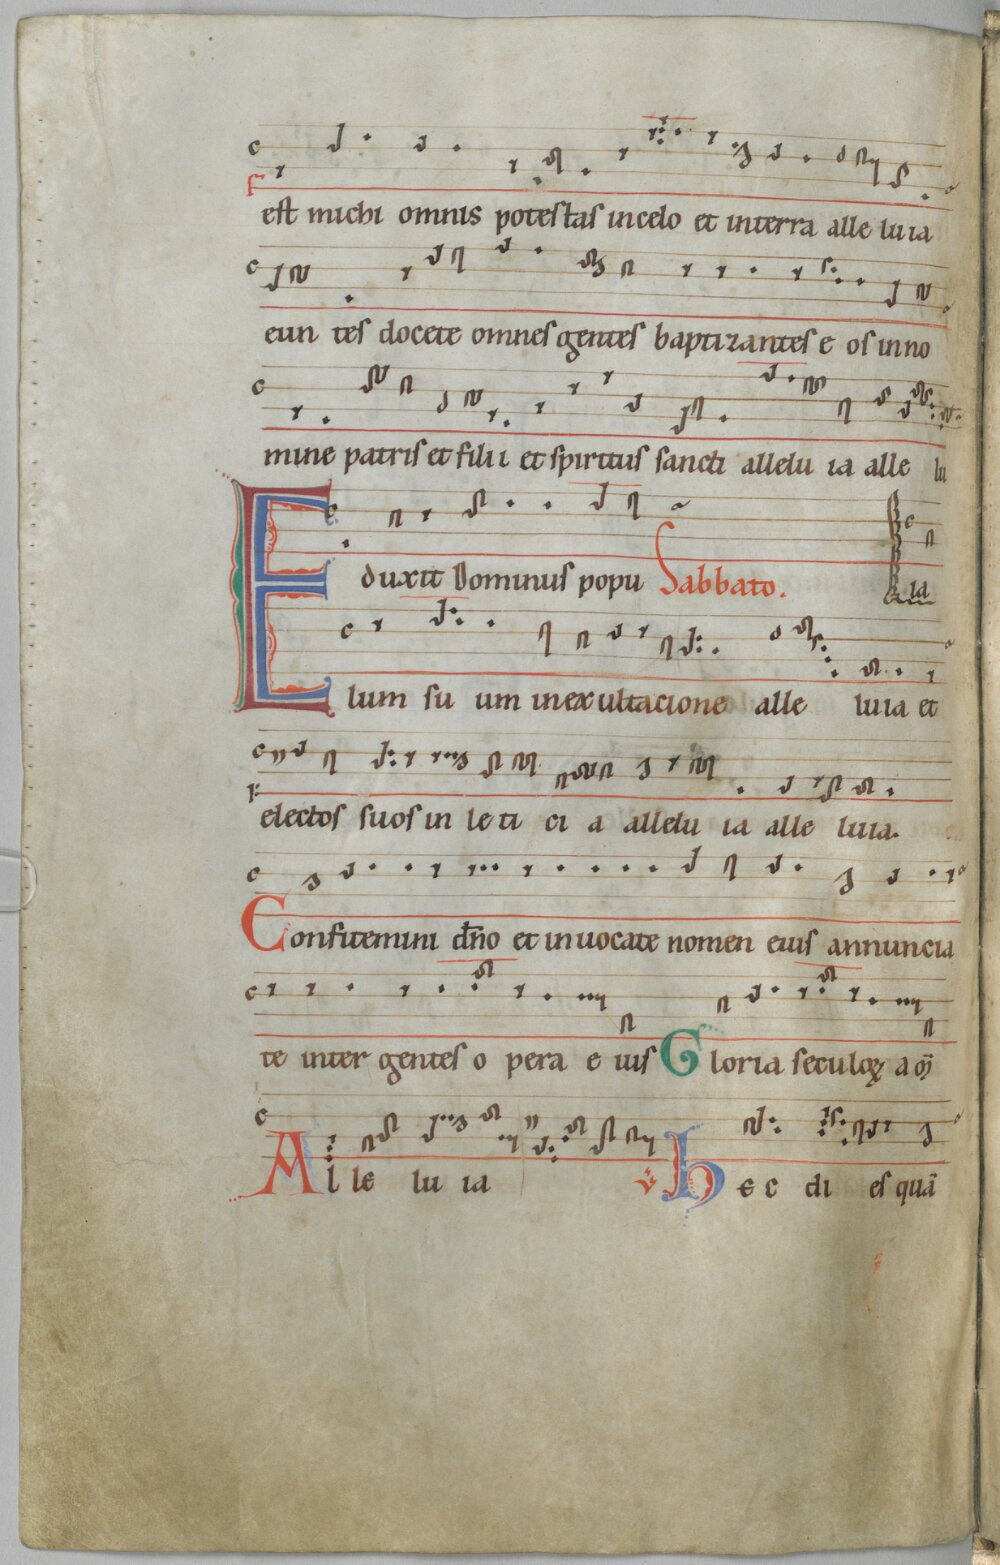 est michi omnis potestas incelo et interra alle luia
eun tes docete omnes gentes baptizantes e os in no
mine patris et filii et spiritus sancti allelu ia alle lu
ia
Eduxit Dominus popu Sabbato.
lum su um inexultacione alle luia et
electos suos in le ti ci a allelu ia alle luia.
Confitemini dño et inuocate nomen eius annuncia
te inter gentes o pera e uis Gloria seculoꝝ am̄
Al le lu ia ℣ hec di es quā